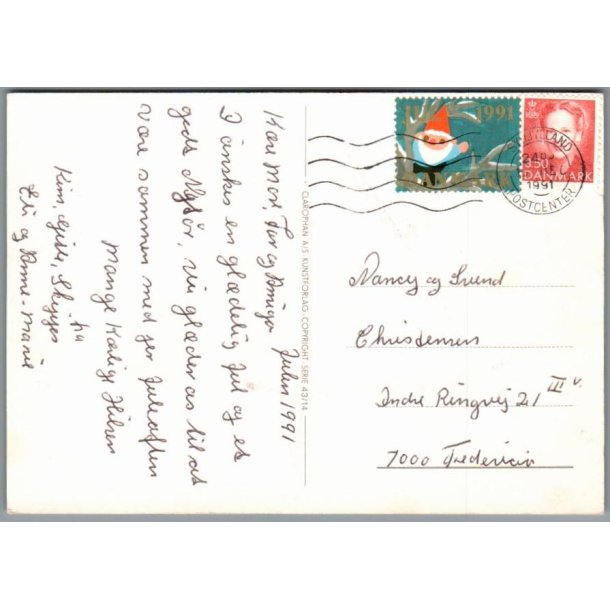 Julen 1991
Kære Mor, Far og
I ønskes en glædelig Jul og et
godt Nytår, vi glæder os til at
være sammen med jer Juleaften
Mange Kærlige Hilsen
fra
Kim, Gitte,
Eli og Anne-Marie
CLAROPHAN A/S KUNSTFORLAG. COPYRIGHT SERIE 43/14
JUL 1991
DANMARK
350
DANMARK
1991
POSTCENTER
Nancy og Svend
Christensen
Indre Ringvej 21 III v.
7000 Fredericia